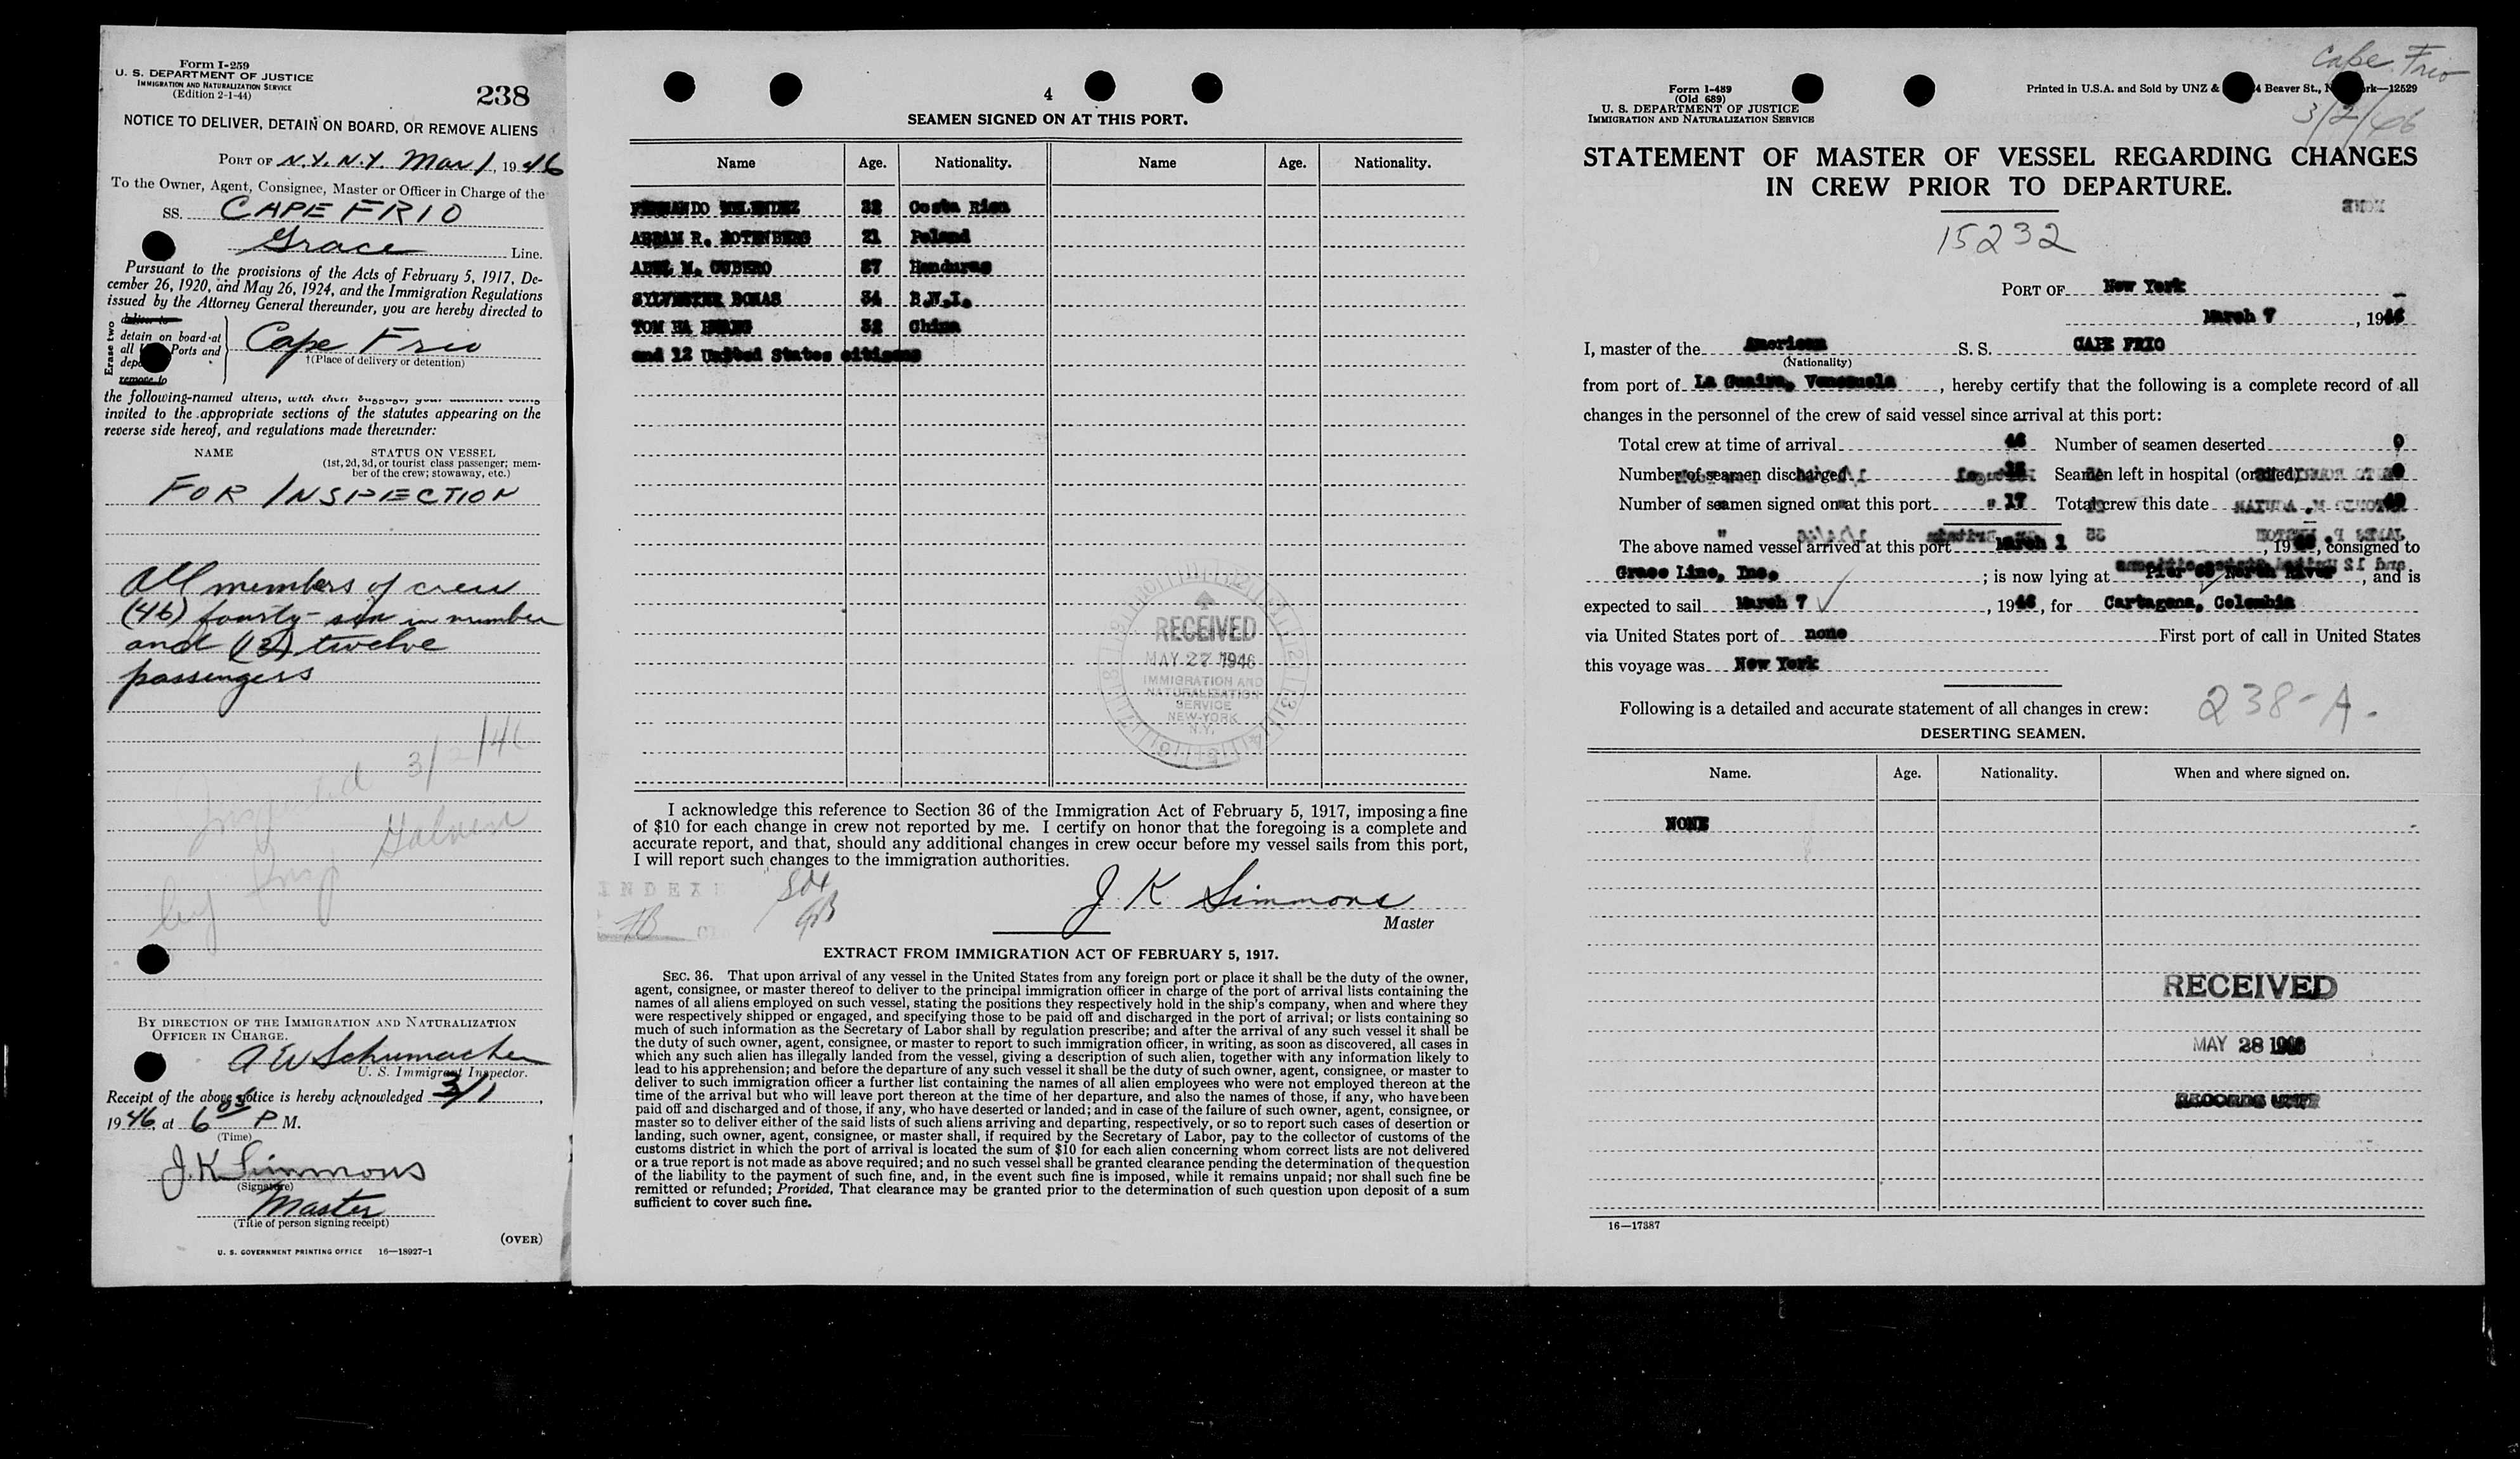 Form I-259
U. S. DEPARTMENT OF JUSTICE
IMMIGRATION AND NATURALIZATION SERVICE
(Edition 2-1-44)
238
NOTICE TO DELIVER, DETAIN ON BOARD, OR REMOVE ALIENS
PORT OF N.Y. N.Y. Mar 1, 1946
To the Owner, Agent, Consignee, Master or Officer in Charge of the
SS. CAPE FRIO
Grace Line.
Pursuant to the provisions of the Acts of February 5, 1917, De-
cember 26, 1920, and May 26, 1924, and the Immigration Regulations
issued by the Attorney General thereunder, you are hereby directed to
Erase two
deliver to
detain on board at
all Ports and
remove to
Cape Frio
†(Place of delivery or detention)
the following-named aliens, with their baggage, your attention being
invited to the appropriate sections of the statutes appearing on the
reverse side hereof, and regulations made thereunder:
NAME STATUS ON VESSEL
(1st, 2d, 3d, or tourist class passenger; mem-
ber of the crew; stowaway, etc.)
FOR INSPECTION
All members of crew
(46) fourty-six in number
and (12) twelve
passengers
Inspected 3/2/46
by Insp Galvin
BY DIRECTION OF THE IMMIGRATION AND NATURALIZATION
OFFICER IN CHARGE.
A W Schumacher
U. S. Immigrant Inspector.
Receipt of the above notice is hereby acknowledged 3/1,
1946, at 6 05 P M.
(Time)
J. K. Simmons
(Signature)
Master
(Title of person signing receipt)
(OVER)
U. S. GOVERNMENT PRINTING OFFICE 16—18927-1
4
SEAMEN SIGNED ON AT THIS PORT.
Name Age. Nationality. Name Age. Nationality.
FERNANDO MELENDEZ 32 Costa Rica
ABRAM R. ROTENBERG 21 Poland
ABEL M. CUBERO 27 Honduras
SYLVESTER 34 B.W.I.
TOM HA 32 China
and 12 United States citizens
RECEIVED
MAY 27 1946
IMMIGRATION AND
NATURALIZATION
SERVICE
NEW-YORK
N.Y.
I acknowledge this reference to Section 36 of the Immigration Act of February 5, 1917, imposing a fine
of $10 for each change in crew not reported by me. I certify on honor that the foregoing is a complete and
accurate report, and that, should any additional changes in crew occur before my vessel sails from this port,
I will report such changes to the immigration authorities.
INDEX
J K Simmons
Master
EXTRACT FROM IMMIGRATION ACT OF FEBRUARY 5, 1917.
SEC. 36. That upon arrival of any vessel in the United States from any foreign port or place it shall be the duty of the owner,
agent, consignee, or master thereof to deliver to the principal immigration officer in charge of the port of arrival lists containing the
names of all aliens employed on such vessel, stating the positions they respectively hold in the ship's company, when and where they
were respectively shipped or engaged, and specifying those to be paid off and discharged in the port of arrival; or lists containing so
much of such information as the Secretary of Labor shall by regulation prescribe; and after the arrival of any such vessel it shall be
the duty of such owner, agent, consignee, or master to report to such immigration officer, in writing, as soon as discovered, all cases in
which any such alien has illegally landed from the vessel, giving a description of such alien, together with any information likely to
lead to his apprehension; and before the departure of any such vessel it shall be the duty of such owner, agent, consignee, or master to
deliver to such immigration officer a further list containing the names of all alien employees who were not employed thereon at the
time of the arrival but who will leave port thereon at the time of her departure, and also the names of those, if any, who have been
paid off and discharged and of those, if any, who have deserted or landed; and in case of the failure of such owner, agent, consignee, or
master so to deliver either of the said lists of such aliens arriving and departing, respectively, or so to report such cases of desertion or
landing, such owner, agent, consignee, or master shall, if required by the Secretary of Labor, pay to the collector of customs of the
customs district in which the port of arrival is located the sum of $10 for each alien concerning whom correct lists are not delivered
or a true report is not made as above required; and no such vessel shall be granted clearance pending the determination of the question
of the liability to the payment of such fine, and, in the event such fine is imposed, while it remains unpaid; nor shall such fine be
remitted or refunded; Provided, That clearance may be granted prior to the determination of such question upon deposit of a sum
sufficient to cover such fine.
Cape Frio
3/2/46
Form I-489
(Old 689)
U. S. DEPARTMENT OF JUSTICE
IMMIGRATION AND NATURALIZATION SERVICE
Printed in U.S.A. and Sold by UNZ & Beaver St., 12529
STATEMENT OF MASTER OF VESSEL REGARDING CHANGES
IN CREW PRIOR TO DEPARTURE.
15232
PORT OF New York
March 7, 1946
I, master of the American S. S. CAPE FRIO
(Nationality)
from port of La Guaira, Venezuela, hereby certify that the following is a complete record of all
changes in the personnel of the crew of said vessel since arrival at this port:
Total crew at time of arrival 46 Number of seamen deserted 0
Number of seamen discharged Seamen left in hospital (or died) 0
Number of seamen signed on at this port 17 Total crew this date
The above named vessel arrived at this port March 1, 1946, consigned to
Grace Line, Inc.; is now lying at Pier North River, and is
expected to sail March 7, 1946, for Cartagena, Colombia
via United States port of none First port of call in United States
this voyage was New York
Following is a detailed and accurate statement of all changes in crew: 238-A.
DESERTING SEAMEN.
Name. Age. Nationality. When and where signed on.
NONE
RECEIVED
MAY 28 1946
RECORDS UNIT
16—17387